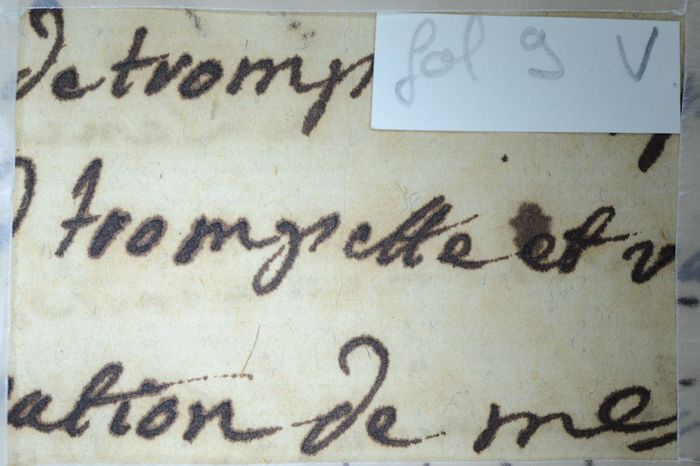 de tromp
fol 9 V
trompette et v
ation de me